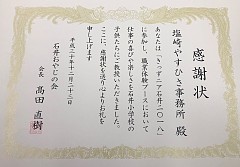 感謝状
塩崎やすひさ事務所 殿
あなたは「きっずニア石井二〇一八」
に参加し、職業体験ブースにおいて
仕事の喜びや楽しさを石井小学校の
子供たちにご教授いただきました。
ここに、感謝状を送り心よりお礼を
申し上げます
平成三十年十二月二十二日
石井おやじの会
会長 高田 直樹